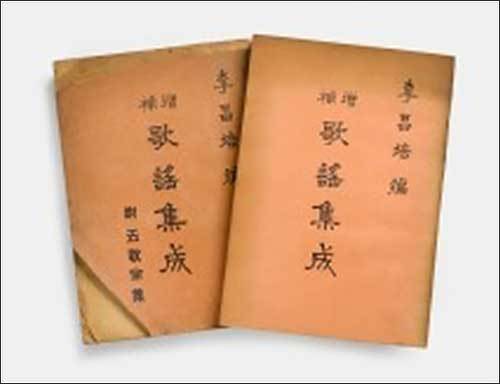 李昌培編
增補
歌謠集成
五歌
李昌培編
增補
歌謠集成